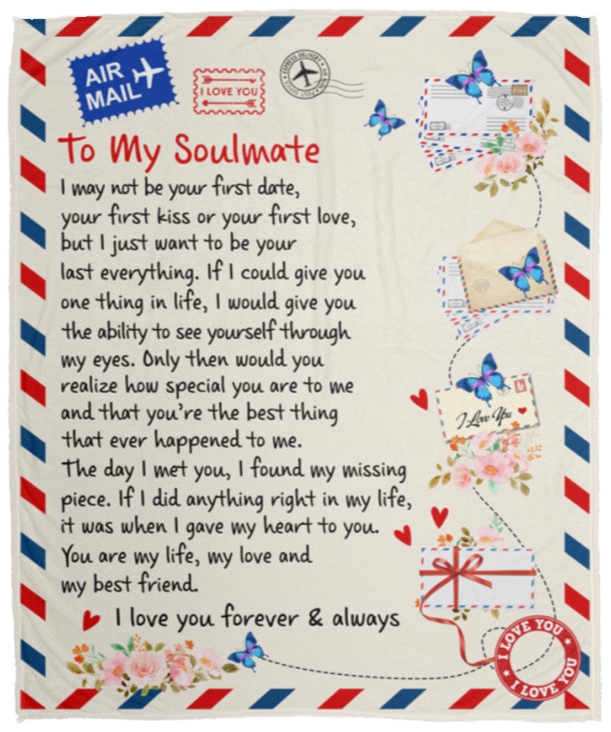 AIR
MAIL
I LOVE YOU
EXPRESS DELIVERY
AIR MAIL
To My Soulmate
I may not be your first date,
your first kiss or your first love,
but I just want to be your
last everything. If I could give you
one thing in life, I would give you
the ability to see yourself through
my eyes. Only then would you
realize how special you are to me
and that you're the best thing
that ever happened to me.
The day I met you, I found my missing
piece. If I did anything right in my life,
it was when I gave my heart to you.
You are my life, my love and
my best friend.
I love you forever & always
I Love You
I LOVE YOU
I LOVE YOU